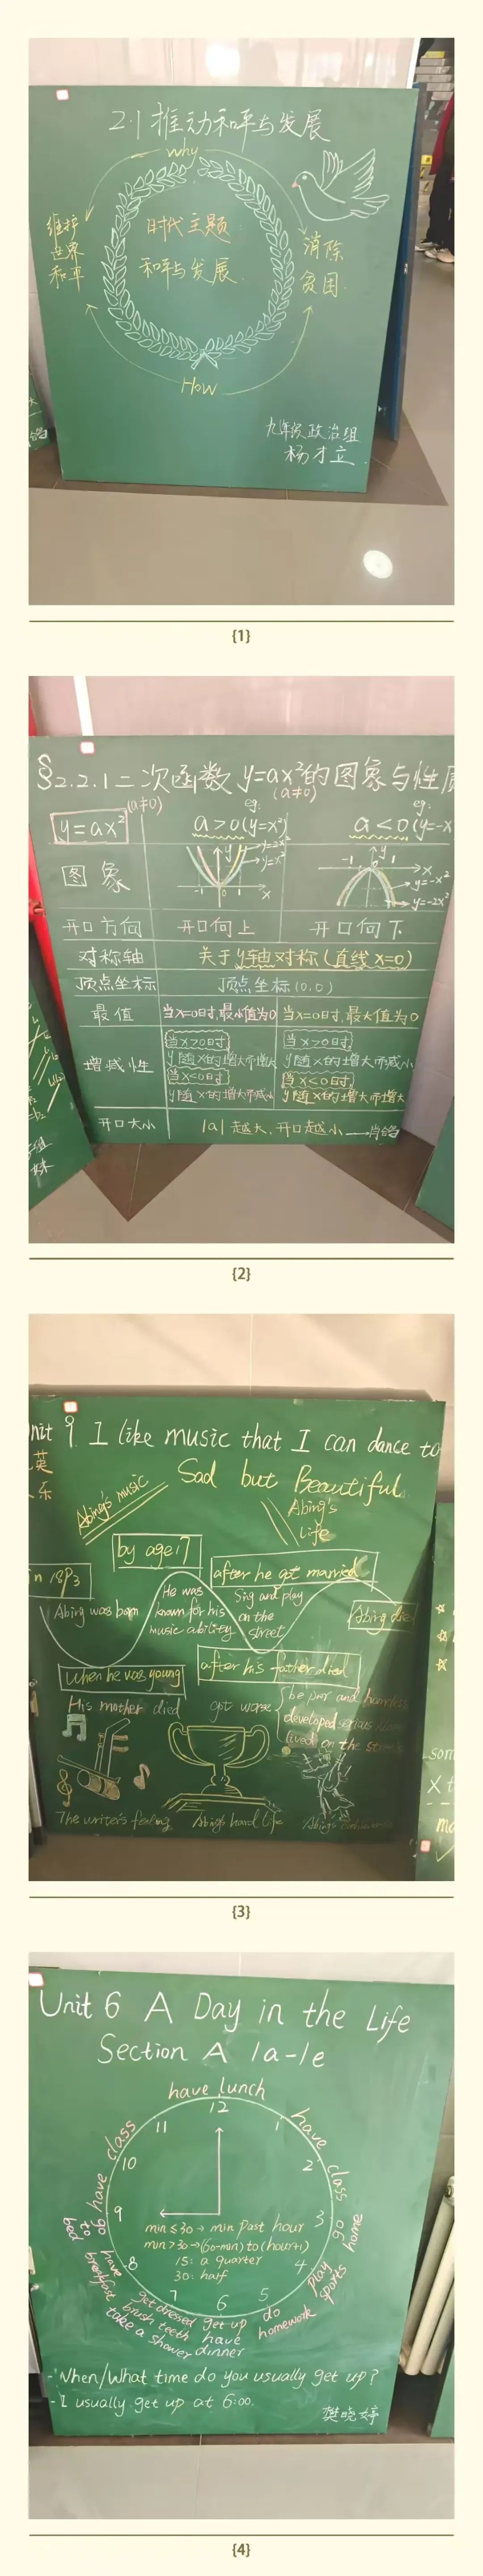 2.1 推动和平与发展
why
维护
世界
和平
时代主题
和平与发展
消除
贫困
How
九年级政治组
杨才立
{1}
§2.2.1 二次函数 y=ax²的图象与性质
(a≠0)
y=ax² (a≠0)
eg:
a>0 (y=x²)
eg:
a<0 (y=-x
图象
y
y=2x²
y=x²
-1 0 1 x
-1 1 x
y=-x²
y=-2x²
开口方向 开口向上 开口向下
对称轴 关于y轴对称(直线x=0)
顶点坐标 顶点坐标(0,0)
最值 当x=0时,最小值为0 当x=0时,最大值为0
增减性
当x>0时,
y随x的增大而增大
当x<0时,
y随x的增大而减小
当x>0时,
y随x的增大而减小
当x<0时,
y随x的增大而增大
开口大小 |a|越大,开口越小
{2}
nit 9 I like music that I can dance to
英
乐
Sad but Beautiful
Abing's music
Abing's
Life
by age 17
after he got married
in 1893
Abing was born
He was
known for his
music ability
Sing and play
on the
street
Abing died
when he was young
after his father died
His mother died
got worse
be poor and homeless
developed serious
lived on the streets
The writer's feeling
Abing's hard life
Abing's
{3}
Unit 6 A Day in the Life
Section A 1a-1e
have lunch
12
11
1
have class
have class
10
2
9
3
go home
8
4
play sports
7
6
5
min≤30→min past hour
min>30→(60-min) to (hour+1)
15: a quarter
30: half
go to bed
have breakfast
get dressed
brush teeth
take a shower
get up
have
dinner
do
homework
- When/What time do you usually get up?
- I usually get up at 6:00.
樊晓婷
{4}